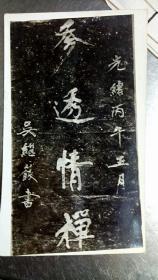 光緒丙午五月
參透情禪
吳繼籛書